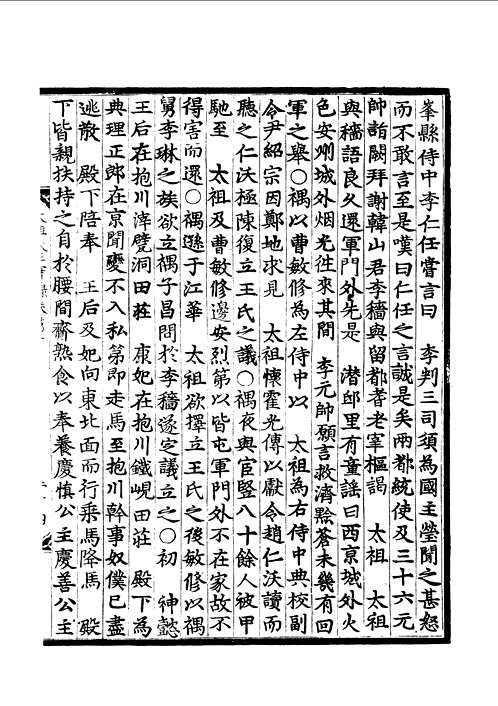 峯縣侍中李仁任嘗言曰 李判三司須爲國主瑩聞之甚怒
而不敢言至是嘆曰仁任之言誠是矣兩都統使及三十六元
帥詣闕拜謝韓山君李穡與留都耆老宰樞謁 太祖 太祖
與穡語良久還軍門外先是 潜邸里有童謡曰西京城外火
色安州城外烟光往來其間 李元帥願言救濟黔蒼未幾有回
軍之舉○禑以曹敏修爲左侍中以 太祖爲右侍中典校副
令尹紹宗因鄭地求見 太祖懷霍光傳以獻令趙仁沃讀而
聽之仁沃極陳復立王氏之議○禑夜與宦竪八十餘人被甲
馳至 太祖及曹敏修邊安烈第以皆屯軍門外不在家故不
得害而還○禑遜于江華 太祖欲擇立王氏之後敏修以禑
舅李琳之族欲立禑子昌問於李穡遂定議立之○初 神懿
王后在抱川滓甓洞田莊 康妃在抱川鐵峴田莊 殿下爲
典理正郎在京聞變不入私第即走馬至抱川幹事奴僕已盡
逃散 殿下陪奉 王后及妃向東北面而行乘馬降馬 殿
下皆親扶持之自於腰間齋熟食以奉養慶愼公主慶善公主